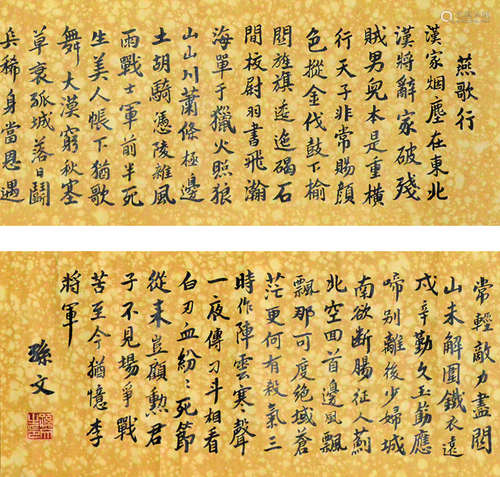 燕歌行
漢家烟塵在東北
漢將辭家破殘
賊男兒本是重橫
行天子非常賜顔
色摐金伐鼓下榆
關旌旗逶迤碣石
間校尉羽書飛瀚
海單于獵火照狼
山山川蕭條極邊
土胡騎憑陵雜風
雨戰士軍前半死
生美人帳下猶歌
舞大漠窮秋塞
草衰孤城落日鬪
兵稀身當恩遇
常輕敵力盡關
山未解圍鐵衣遠
戍辛勤久玉筯應
啼別離後少婦城
南欲斷腸征人薊
北空回首邊風飄
飄那可度絕域蒼
茫更何有殺氣三
時作陣雲寒聲
一夜傳刁斗相看
白刃血紛〻死節
從来豈顧勲君
子不見場爭戰
苦至今猶憶李
將軍
孫文